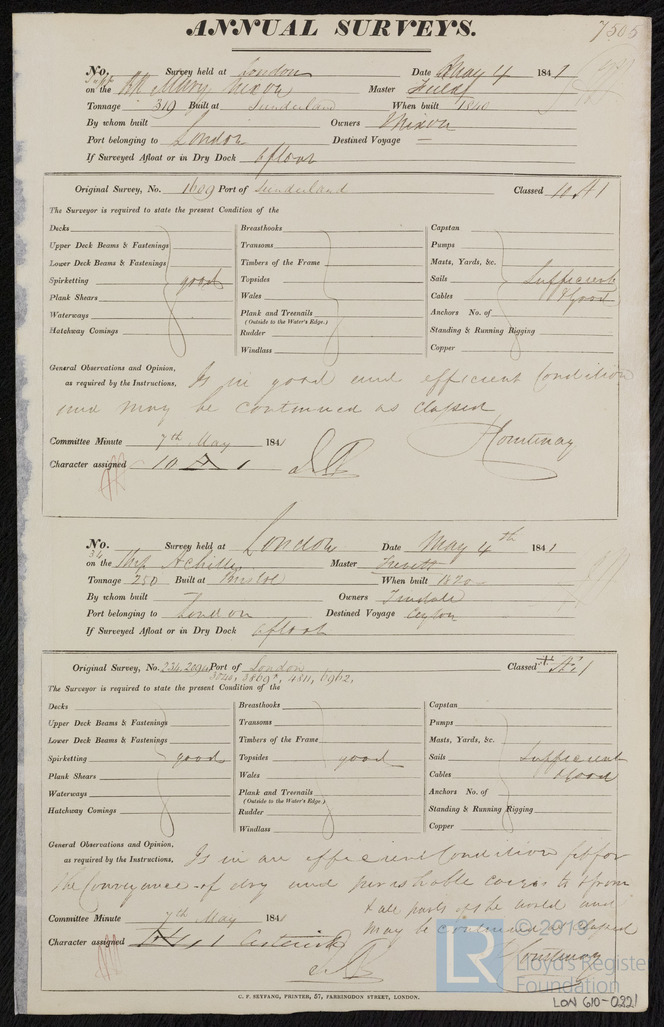 ANNUAL SURVEYS.
7505
No. Survey held at London Date May 4 1841
on the Bk Mary Nixon Master Field
Tonnage 319 Built at Sunderland When built 1840
By whom built Owners Nixon
Port belonging to London Destined Voyage —
If Surveyed Afloat or in Dry Dock afloat
Original Survey, No. 1609 Port of Sunderland Classed 10 A 1
The Surveyor is required to state the present Condition of the
Decks Breasthooks Capstan
Upper Deck Beams & Fastenings Transoms Pumps
Lower Deck Beams & Fastenings Timbers of the Frame Masts, Yards, &c.
Spirketting good Topsides Sails Sufficient
Plank Shears Wales Cables & Good
Waterways Plank and Treenails Anchors No. of
(Outside to the Water's Edge.)
Hatchway Comings Rudder Standing & Running Rigging
Windlass Copper
General Observations and Opinion,
as required by the Instructions, Is in good and efficient Condition
and may be continued as classed
Courtenay
Committee Minute 7th May 1841
Character assigned 10 A 1
No. 34 Survey held at London Date May 4th 1841
on the Ship Achilles Master
Tonnage 250 Built at Bristol When built 1820
By whom built Owners Tindale
Port belonging to London Destined Voyage Ceylon
If Surveyed Afloat or in Dry Dock afloat
Original Survey, No. 234, 2094 Port of London Classed A 1
3040, 3869, 4811, 6962,
The Surveyor is required to state the present Condition of the
Decks Breasthooks Capstan
Upper Deck Beams & Fastenings Transoms Pumps
Lower Deck Beams & Fastenings Timbers of the Frame Masts, Yards, &c.
Spirketting good Topsides good Sails Sufficient
Plank Shears Wales Cables & Good
Waterways Plank and Treenails Anchors No. of
(Outside to the Water's Edge.)
Hatchway Comings Rudder Standing & Running Rigging
Windlass Copper
General Observations and Opinion,
as required by the Instructions, Is in an efficient Condition fit for
the Conveyance of dry and perishable cargos to & from
& all parts of the world and
may be continued as classed
Courtenay
Committee Minute 7th May 1841
Character assigned A 1 Asterisk
C. F. SEYFANG, PRINTER, 57, FARRINGDON STREET, LONDON.
LR © 2019
Lloyd's Register
Foundation
LON 610-0221